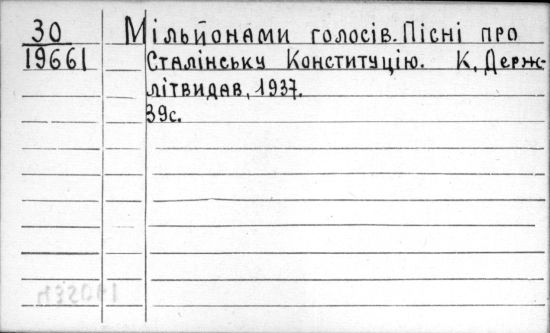 30
19661
Мільйонами голосів. Пісні про
Сталінську Конституцію. К, Держ-
літвидав, 1937.
39с.